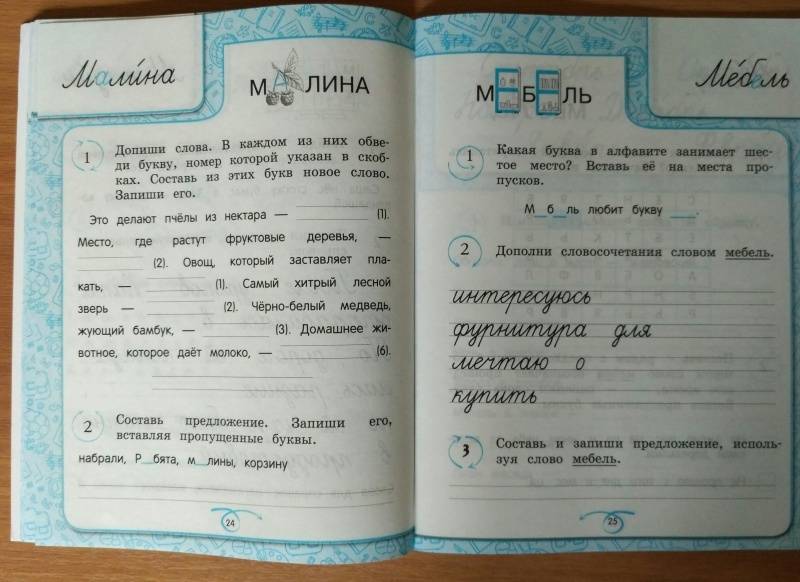 Мали́на
МАЛИНА
1 Допиши слова. В каждом из них обве-
ди букву, номер которой указан в скоб-
ках. Составь из этих букв новое слово.
Запиши его.
Это делают пчёлы из нектара — ________ (1).
Место, где растут фруктовые деревья, —
________ (2). Овощ, который заставляет пла-
кать, — ________ (1). Самый хитрый лесной
зверь — ________ (2). Чёрно-белый медведь,
жующий бамбук, — ________ (3). Домашнее жи-
вотное, которое даёт молоко, — ________ (6).
2 Составь предложение. Запиши его,
вставляя пропущенные буквы.
набрали, Р_бята, м_лины, корзину
24
Ме́бель
МЕБЕЛЬ
1 Какая буква в алфавите занимает шес-
тое место? Вставь её на места про-
пусков.
М_б_ль любит букву ____.
2 Дополни словосочетания словом мебель.
интересуюсь
фурнитура для
мечтаю о
купить
3 Составь и запиши предложение, исполь-
зуя слово мебель.
25